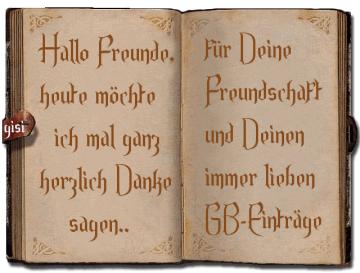 Hallo Freunde,
heute möchte
ich mal ganz
herzlich Danke
sagen..
für Deine
Freundschaft
und Deinen
immer lieben
GB-Einträge
gisi